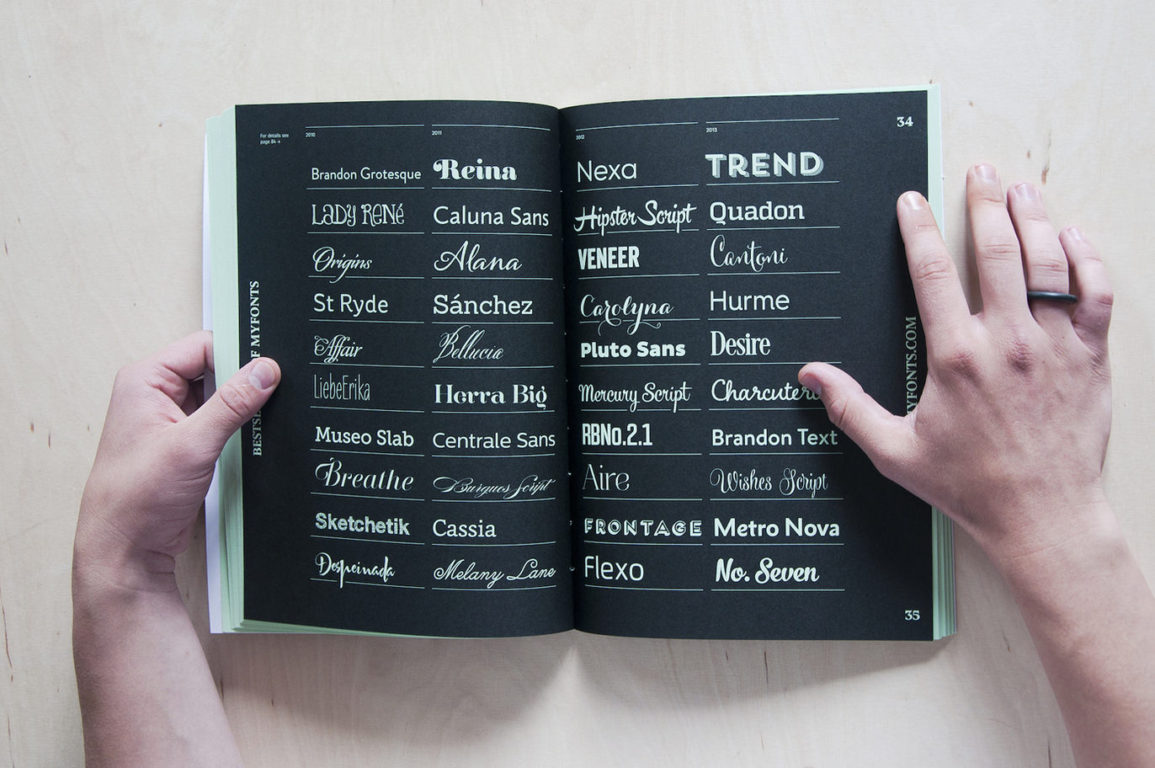 For details see
page 84 →
2010
Brandon Grotesque
LADY RENÉ
Origins
St Ryde
Affair
LiebeErika
Museo Slab
Breathe
Sketchetik
Despeinada
2011
Reina
Caluna Sans
Alana
Sánchez
Bellucia
Horra Big
Centrale Sans
Burgues Script
Cassia
Melany Lane
2012
Nexa
Hipster Script
VENEER
Carolyna
Pluto Sans
Mercury Script
RBNo.2.1
Aire
FRONTAGE
Flexo
2013
TREND
Quadon
Cantoni
Hurme
Desire
Charcuter
Brandon Text
Wishes Script
Metro Nova
No. Seven
34
35
MYFONTS
MYFONTS.COM